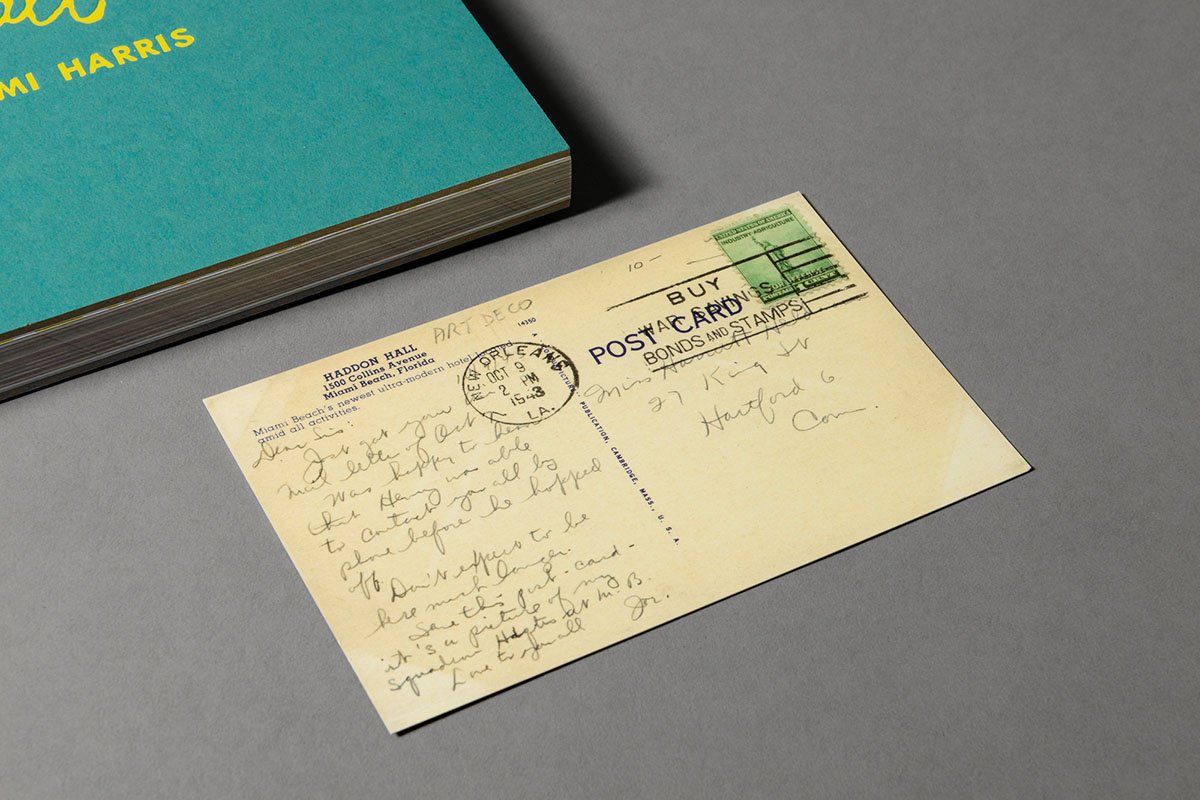 MI HARRIS
ART DECO
10-
14350
HADDON HALL
1500 Collins Avenue
Miami Beach, Florida
Miami Beach's newest ultra-modern hotel
amid all activities.
NEW ORLEANS
OCT 9
2 PM
1943
LA.
BUY
WAR SAVINGS
BONDS AND STAMPS
POST CARD
UNITED STATES OF AMERICA
INDUSTRY AGRICULTURE
PUBLICATION, CAMBRIDGE, MASS., U. S. A.
Dear Sis:
Just got your
mail letter of Oct
Was happy to hear
that Henry was able
to contact you all by
phone before he hopped
off.
Don't expect to be
here much longer.
Save this post-card-
it's a picture of my
Squadron Hdqtrs at M. B.
Love to you all
Joe.
Miss
27 King St
Hartford 6
Conn.